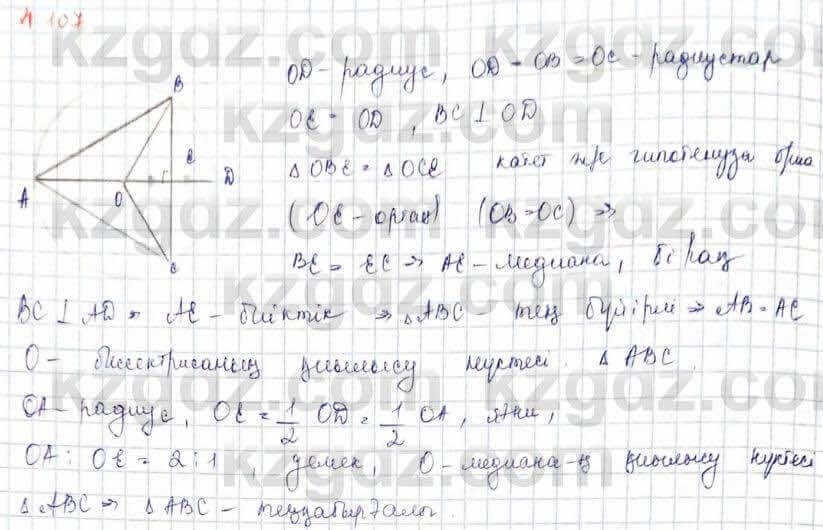 № 107
kzgdz.com
B
E
A
O
D
C
OD – радиус, OD = OB = OC – радиустар
OE = OD, BC ⊥ OD
△OBE = △OCE катет және гипотенуза
(OE – ортақ) (OB = OC) ⇒
BE = EC ⇒ AE – медиана, бірақ
BC ⊥ AD ⇒ AE – биіктік ⇒ △ABC тең бүйірлі ⇒ AB = AC
O – биссектрисаның қиылысу нүктесі △ABC.
OA – радиус, OE = 1/2 OD = 1/2 OA, яғни,
OA : OE = 2 : 1, демек, O – медиана-ң қиылысу нүктесі
△ABC ⇒ △ABC – теңқабырғалы.